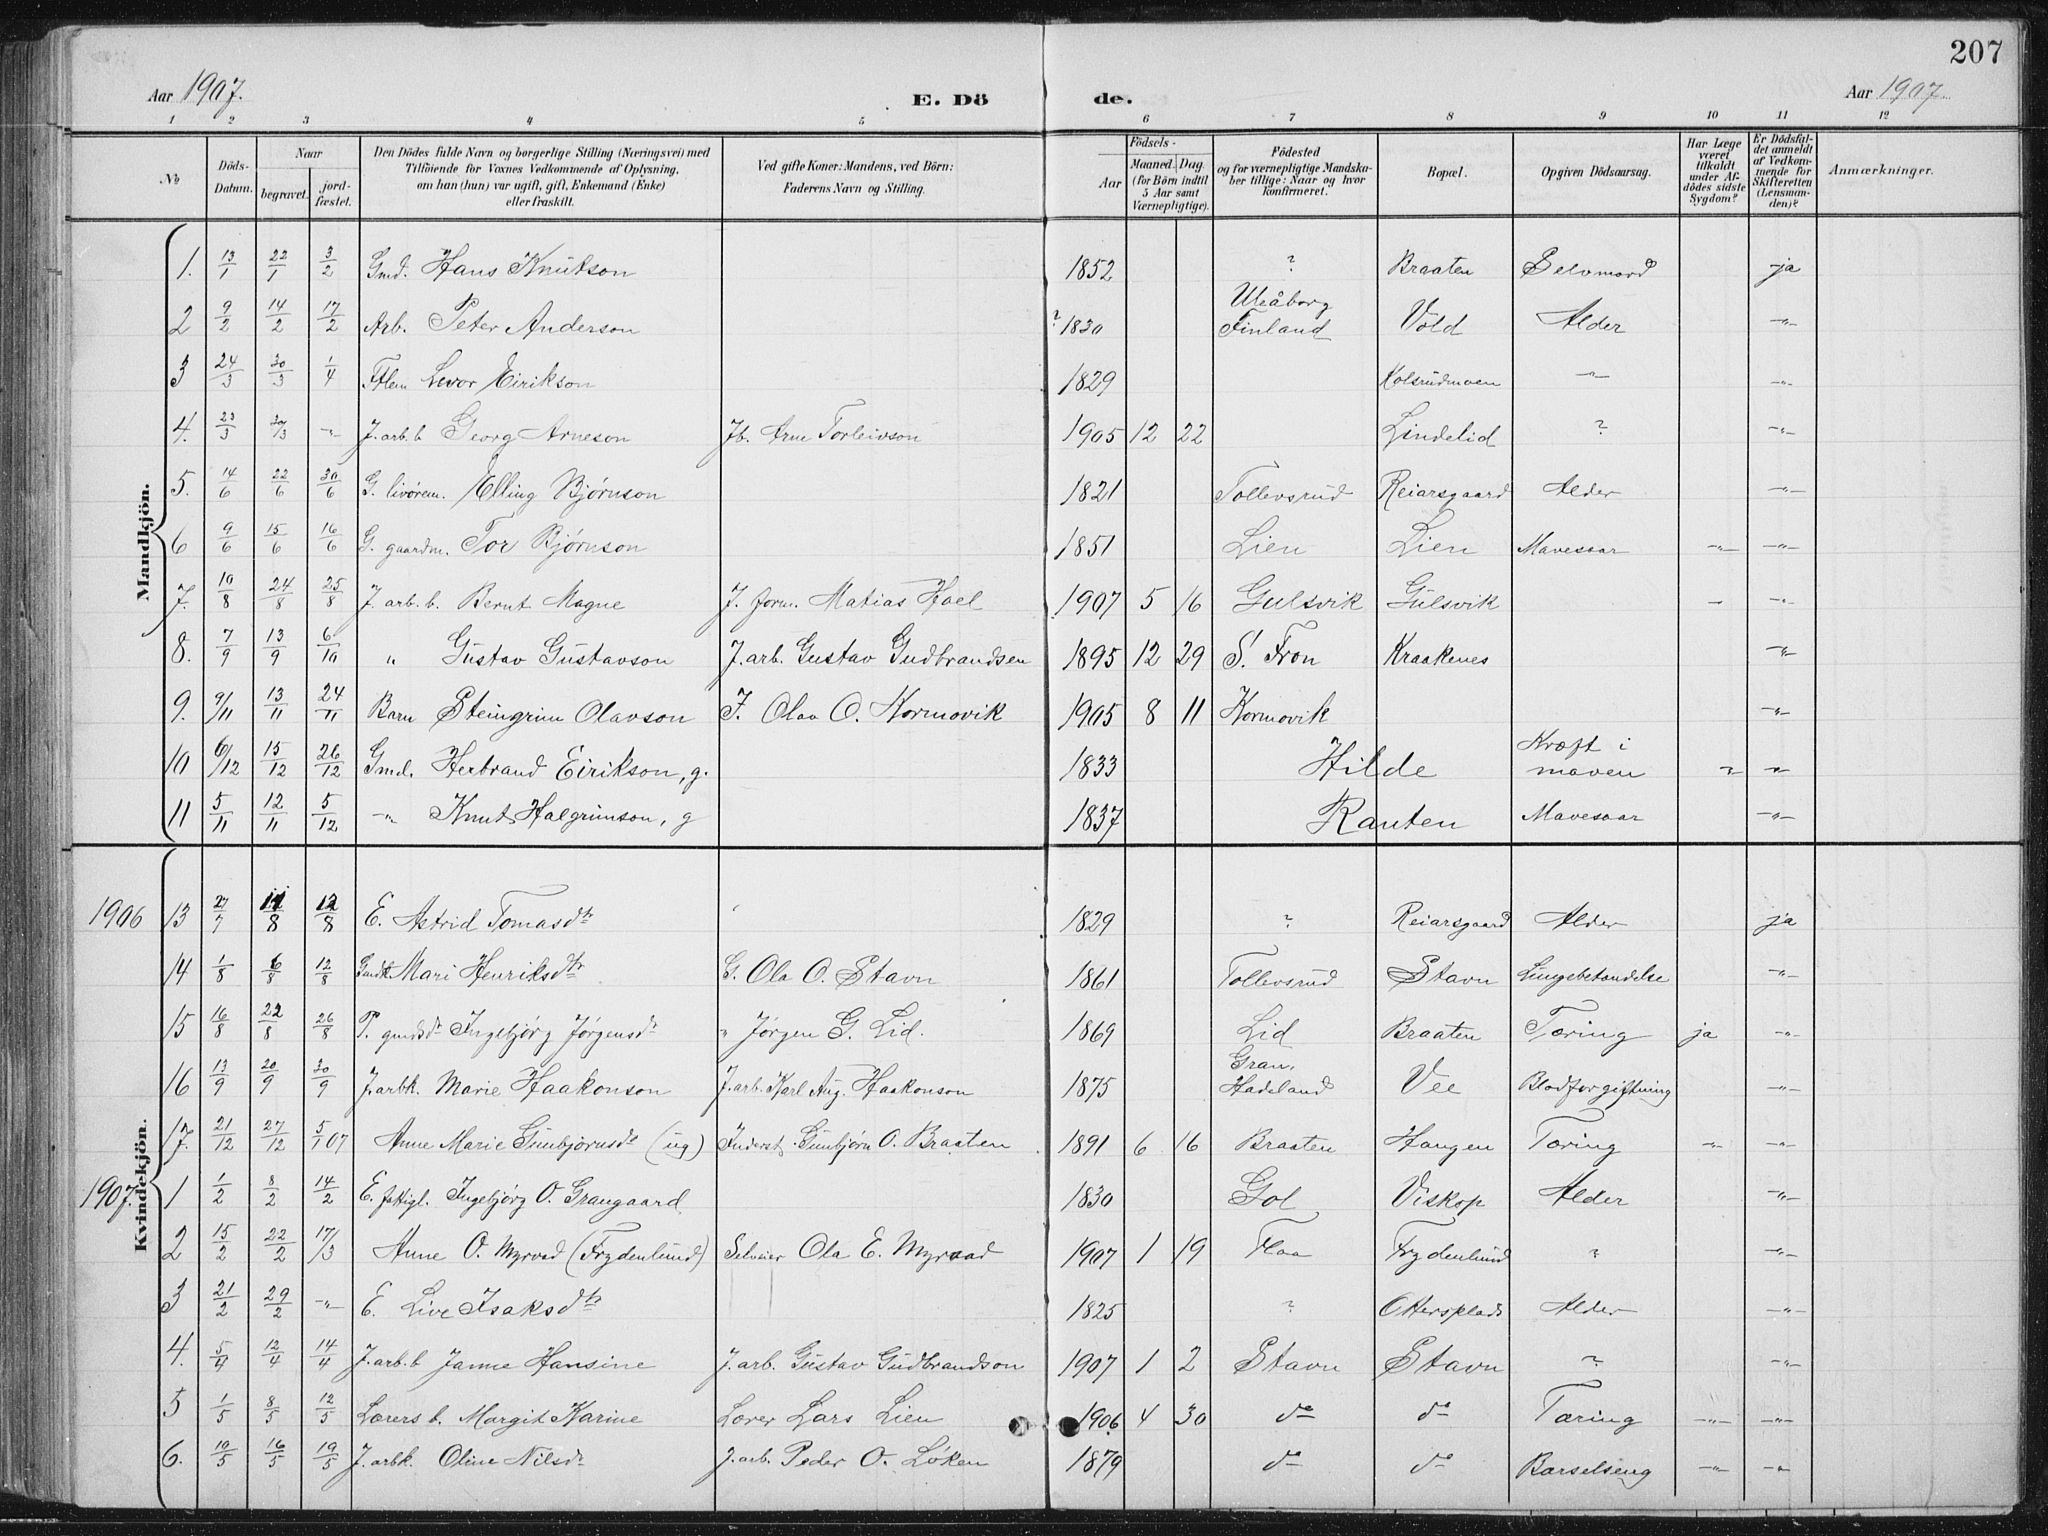 207
Aar 1907. E. Dö de. Aar 1907.
1 2 3 4 5 6 7 8 9 10 11 12
No Döds-Datum. Naar begravet. jord-fæstet. Den Dödes fulde Navn og borgerlige Stilling (Næringsvei) med Tilföiende for Voxnes Vedkommende af Oplysning, om han (hun) var ugift, gift, Enkemand (Enke) eller fraskilt. Ved gifte Koner: Mandens, ved Börn: Faderens Navn og Stilling. Födsels- Aar Maaned. Dag. (for Börn indtil 5 Aar samt Værnepligtige). Födested og for værnepligtige Mandska-ber tillige: Naar og hvor konfirmeret. Bopæl. Opgiven Dödsaarsag. Har Læge været tilkaldt under Af-dödes sidste Sygdom? Er Dödsfal-det anmeldt af Vedkom-mende for Skifteretten (Lensman-den)? Anmærkninger.
Mandkjön.
1. 13/1 22/1 3/2 Gmd. Hans Knutson 1852 ? Braaten Selvmord ja
2 9/2 14/2 17/2 Arb. Peter Anderson ? 1830 Uleåborg Finland Vold Alder -"-
3 24/3 30/3 1/4 Flem Levor Eirikson 1829 Kolsrudmoen -"- -"-
4. 23/3 30/3 -"- J. arb. b Georg Arneson Jb. Arne Torleivson 1905 12 22 Lindelid ? -"-
5. 14/6 22/6 30/6 G. livörem. Elling Bjørnson 1821 Tollevsrud Reiarsgaard Alder -"-
6 9/6 15/6 16/6 G. gaardm. Tor Bjørnson 1851 Lien Lien Mavesaar -"- -"-
7. 10/8 24/8 25/8 J. arb. b. Bernt Magne J. form. Matias Hoel 1907 5 16 Gulsvik Gulsvik - -"-
8. 7/9 13/9 6/10 " Gustav Gustavson J. arb. Gustav Gudbrandsen 1895 12 29 S. Fron Kraakenes -"-
9. 9/11 13/11 24/11 Barn Steingrim Olavson F. Olav O. Kormovik 1905 8 11 Kormovik -"-
10 6/12 15/12 26/12 Gmd. Herbrand Eirikson, g. 1833 Hilde Kræft i maven -"- -"-
11 5/11 12/11 5/12 -"- Knut Halgrimson, g 1837 Rauten Mavesaar -"-
Kvindekjön.
1906 13 27/7 11/8 12/8 E. Astrid Tomasdtr 1829 ? Reiarsgaard Alder ja
14 1/8 6/8 12/8 Gmdk. Mari Henriksdtr G. Ola O. Stavn 1861 Tollevsrud Stavn Lungebetændelse -"-
15 16/8 22/8 26/8 P. gmdsdr Ingebjørg Jørgensdr " Jørgen G. Lid. 1869 Lid Braaten Tæring ja -"-
16 13/9 20/9 30/9 J. arbk. Marie Haakonson J. arb. Karl Aug. Haakonson 1875 Gran, Hadeland Vee Blodforgiftning -"-
17. 21/12 27/12 5/1 07 Anne Marie Gunbjørnsdr (ug) Inderst. Gunbjørn O. Braaten 1891 6 16 Braaten Haugen Tæring -"- -"-
1907. 1 1/2 8/2 14/2 E. fattigl. Ingebjørg O. Grangaard 1830 Gol Viskop Alder -"-
2 15/2 22/2 17/3 Anne O. Myrvad (Frydenlund) Selveier Ola E. Myrvad 1907 1 19 Flaa Frydenlund " -"-
3 21/2 29/2 -"- E. Live Isaksdtr 1825 ? Ottersplads Alder -"-
4. 5/4 12/4 14/4 J. arb. b Janne Hansine J. arb. Gustav Gudbrandson 1907 1 2 Stavn Stavn ? -"-
5 1/5 8/5 12/5 Lærers b. Margit Karine Lærer Lars Lien 1906 4 30 do do Tæring -"- -"-
6. 10/5 16/5 19/5 J. arbk. Oline Nilsdr J. arb. Peder O. Løken 1879 do do Barselseng -"- -"-